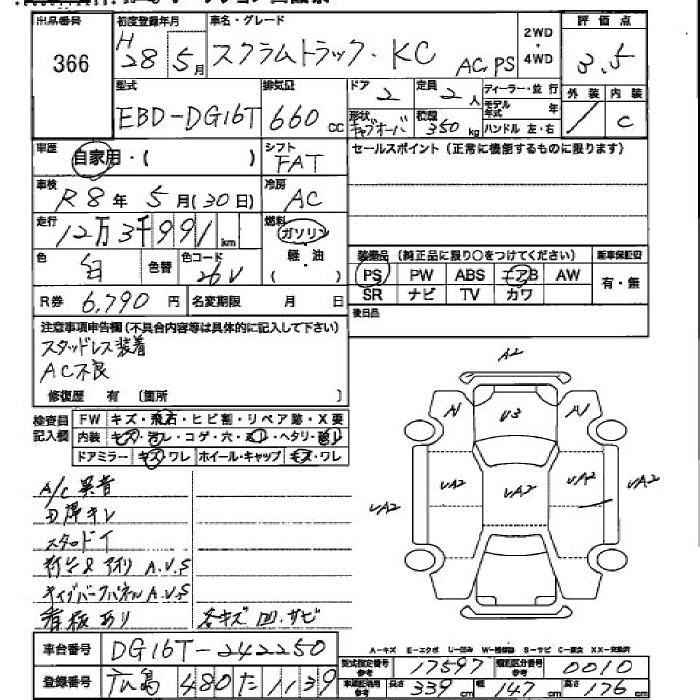 出品番号 初度登録年月 車名・グレード 2WD・4WD 評価点
366 H28 5月 スクラムトラック・KC AC PS 3.5
型式 排気量 ドア 定員 ディーラー・並行 外装 内装
EBD-DG16T 660cc 2 2人 モデル年式 年
形状 キャブオーバ 積載 350kg ハンドル 左・右 / C
車歴 自家用・( ) シフト FAT セールスポイント(正常に機能するものに限ります)
車検 R8年5月(30日) 冷房 AC
走行 12万3千991km 燃料 ガソリン 軽・油 ( )
色 白 色替 色コード 26V
装備品(純正品に限り○をつけてください) 新車保証書
PS PW ABS エアB AW 有・無
SR ナビ TV カワ
R券 6,790円 名変期限 月 日 後日品
注意事項申告欄(不具合内容等は具体的に記入して下さい)
スタッドレス装着
AC不良
修復歴 有 〔箇所 〕
検査員記入欄 FW キズ・飛石・ヒビ割・リペア跡・X要
内装 ・コゲ・穴・ ・ヘタリ・
ドアミラー キズ・ワレ ホイール・キャップ キズ・ワレ
A/C異音
スタッドレス
A.U.S
A.U.S
看板あり 各キズ凹サビ
A2
A1 U3 A1
UA2 UA2 UA2 UA2 UA2
A-キズ E-エクボ U-凹み W-補修跡 S-サビ C-腐食 XX-交換済
車台番号 DG16T-242250
型式指定番号参考 17597 類別区分番号参考 0010
登録番号 広島 480 た 1139
長さ 339cm 幅 147cm 高さ 176cm